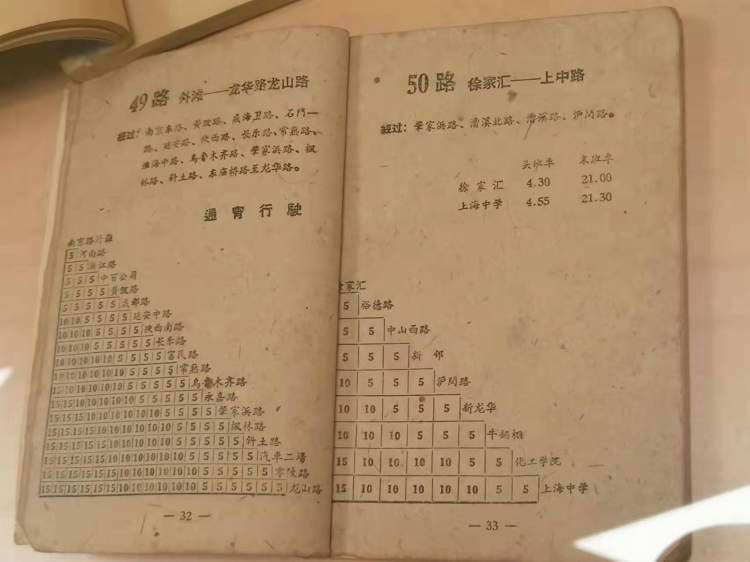 49路 外滩——龙华路龙山路
经过:南京东路、黄陂路、威海卫路、石门一
路、延安路、陕西路、长乐路、常熟路、
淮海中路、乌鲁木齐路、肇家浜路、枫
林路、斜土路、东庙桥路至龙华路。
通宵行驶
南京路外滩
5 河南路
5 5 浙江路
5 5 5 中百公司
5 5 5 5 黄陂路
5 5 5 5 5 成都路
10 10 5 5 5 5 延安中路
10 10 10 5 5 5 5 陕西南路
10 10 10 5 5 5 5 5 长乐路
10 10 10 10 10 5 5 5 5 富民路
10 10 10 10 10 10 5 5 5 5 常熟路
15 10 10 10 10 10 10 5 5 5 5 乌鲁木齐路
15 15 10 10 10 10 10 10 5 5 5 5 永嘉路
15 15 15 10 10 10 10 10 10 5 5 5 5 肇家浜路
15 15 15 15 10 10 10 10 10 5 5 5 5 5 枫林路
15 15 15 10 10 10 10 10 5 5 5 5 5 斜土路
15 15 15 15 10 10 10 10 10 5 5 5 5 5 汽车二场
15 15 15 15 15 10 10 10 10 10 5 5 5 5 5 零陵路
15 15 15 15 15 15 10 10 10 10 10 10 10 5 5 5 5 5 5 龙山路
— 32 —
50路 徐家汇——上中路
经过:肇家浜路、漕溪北路、漕溪路、沪闵路。
头班车 末班车
徐家汇 4.30 21.00
上海中学 4.55 21.30
徐家汇
5 裕德路
5 5 中山西路
5 5 5 新邨
10 5 5 5 沪闵路
10 10 5 5 5 新龙华
10 10 10 5 5 5 牛奶棚
15 10 10 10 10 5 5 化工学院
15 10 10 10 10 10 5 5 上海中学
— 33 —